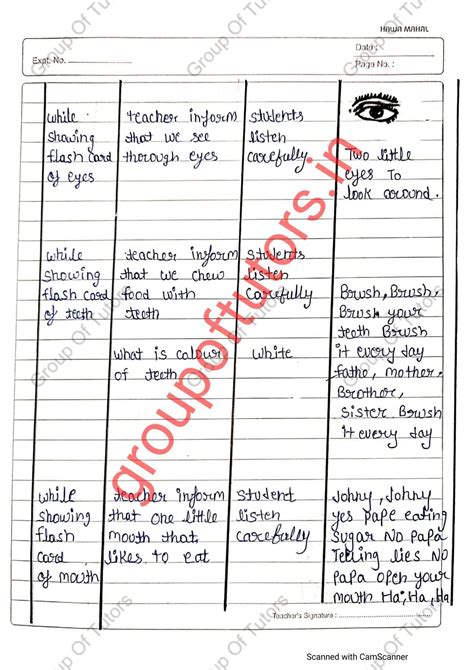 HAWA MAHAL
Date :
Expt. No.
Page No. :
while
showing
flash card
of eyes
teacher inform
that we see
thorough eyes
students
listen
carefully
Two little
eyes To
look around.
while
showing
flash card
of teeth
teacher inform
that we chew
food with
teeth
students
listen
carefully
what is colour
of teeth
white
Brush, Brush,
Brush your
teeth Brush
it every day
fathe, mother,
Brother,
Sister Brush
it every day
while
showing
flash
card
of mouth
teacher inform
that one little
mouth that
likes to eat
student
listen
carefully
Johny, Johny
yes Pape eating
Sugar No Papa
Telling lies No
Papa open your
mouth Ha, Ha, Ha
Teacher's Signature :
groupoftutors.in
Group Of Tutors
Group Of Tutors
Group Of Tutors
Group Of Tutors
Group Of Tutors
Group Of Tutors
Group Of Tutors
Group Of Tutors
Group Of Tutors
Scanned with CamScanner